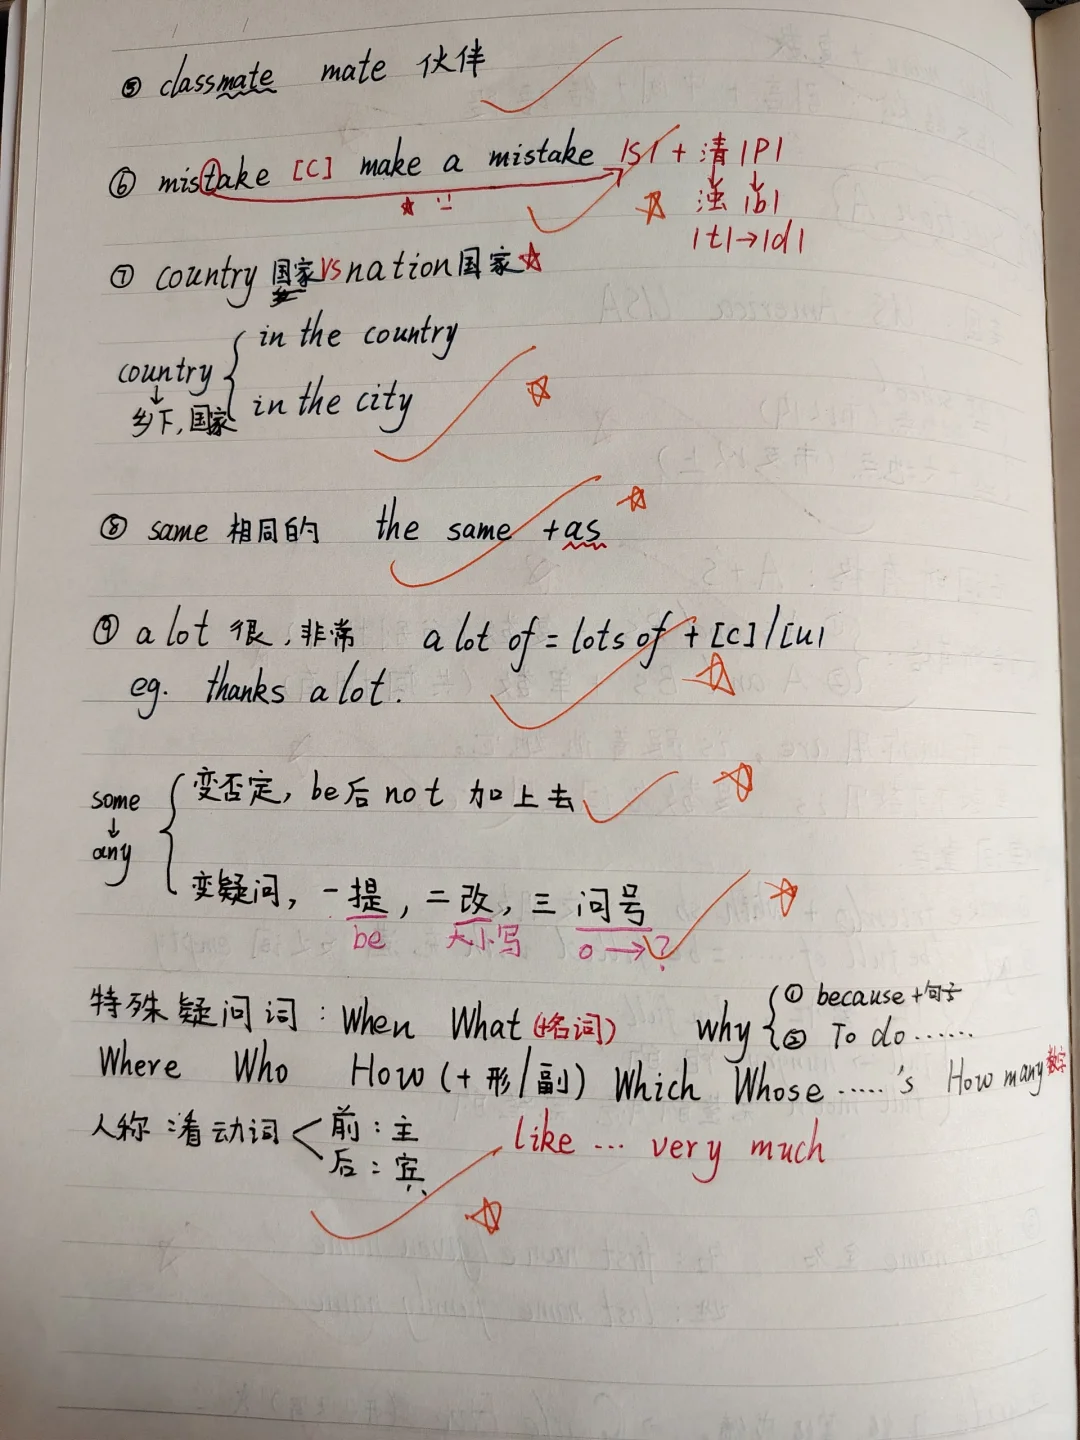 ⑤ classmate mate 伙伴
⑥ mistake [C] make a mistake |S| + 清 |P|
浊 |b|
|t|→|d|
⑦ country 国家 VS nation 国家
in the country
country
in the city
乡下,国家
⑧ same 相同的 the same +as
⑨ a lot 很,非常 a lot of = lots of + [C]/[U]
eg. thanks a lot.
变否定, be后 not 加上去
some
↓
any
变疑问, 一提, 二改, 三问号
be 大小写 o→?
特殊疑问词: When What (+名词) why ① because +句子
② To do ......
Where Who How (+ 形/副) Which Whose ......'s How many 数字
人称 看动词 前:主 like ... very much
后:宾